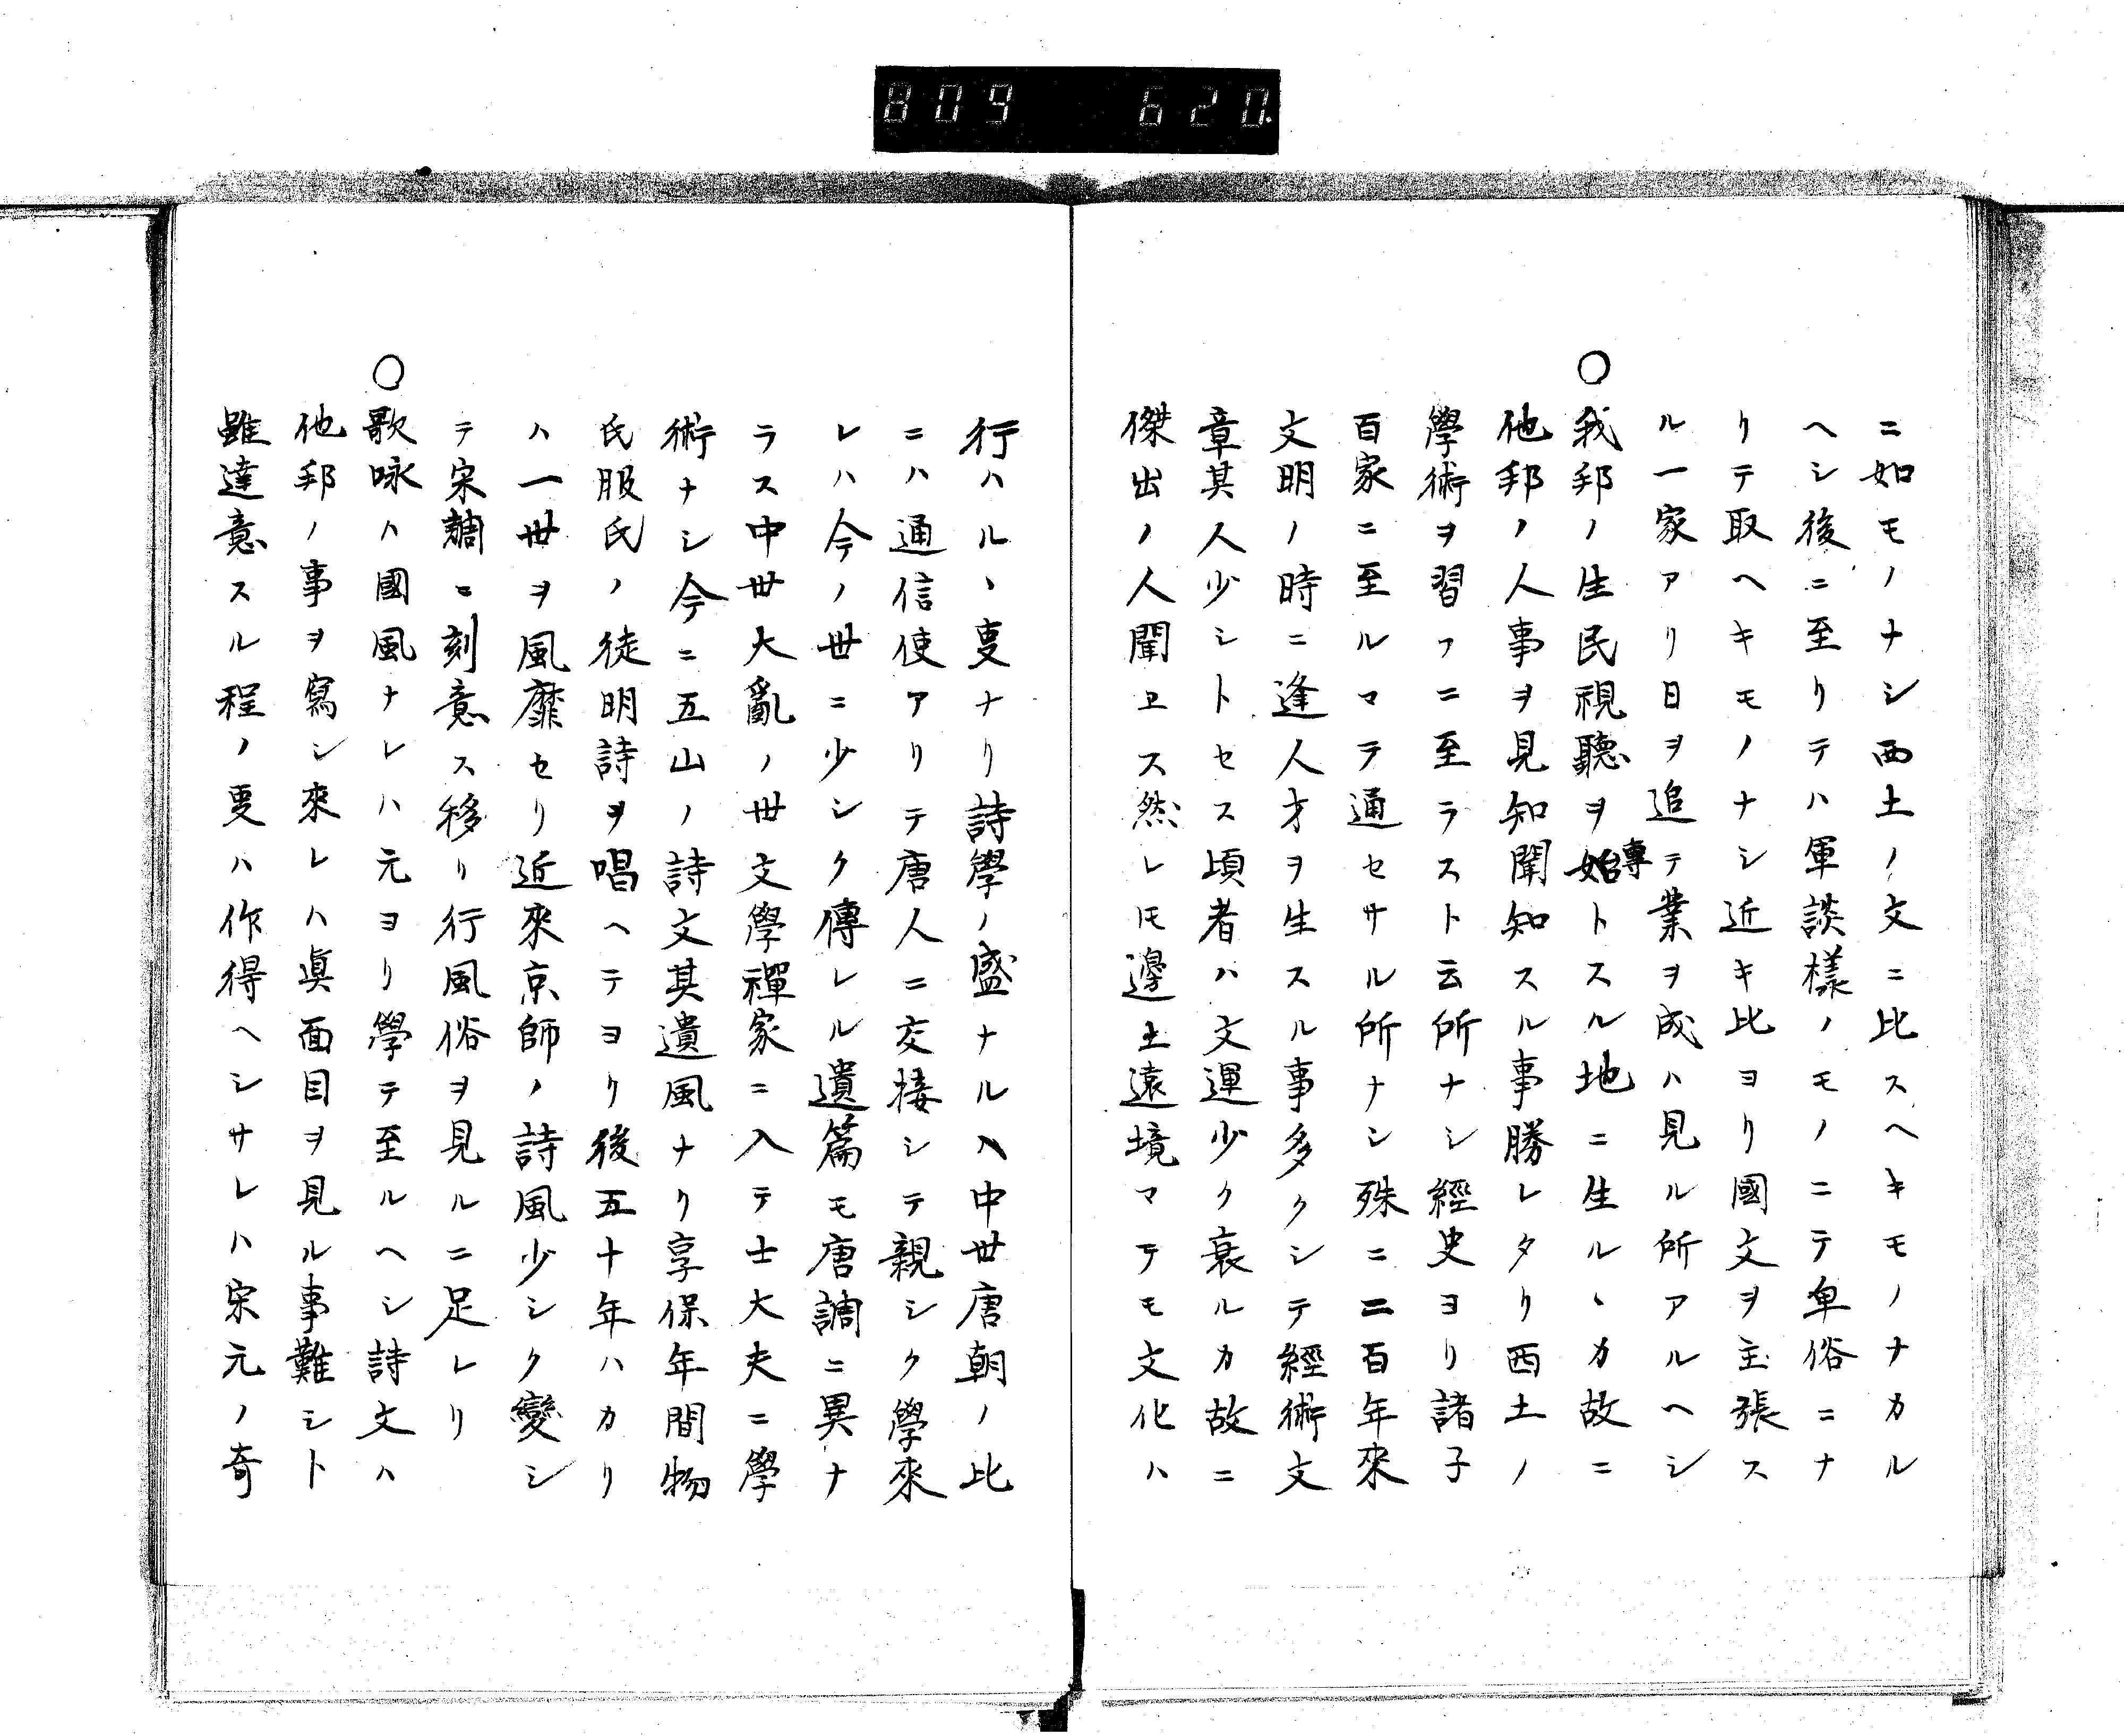 809 620.
ニ如モノナシ西土ノ文ニ比スヘキモノナカル
ヘシ後ニ至リテハ軍談樣ノモノニテ卑俗ニナ
リテ取ヘキモノナシ近キ比ヨリ國文ヲ主張ス
ル一家アリ日ヲ追テ業ヲ成ハ見ル所アルヘシ
○我邦ノ生民視聽ヲ始專トスル地ニ生ルヽカ故ニ
他邦ノ人事ヲ見知聞知スル事勝レタリ西土ノ
學術ヲ習フニ至ラスト云所ナシ經史ヨリ諸子
百家ニ至ルマテ通セサル所ナシ殊ニ二百年來
文明ノ時ニ逢人才ヲ生スル事多クシテ經術文
章其人少シトセス頃者ハ文運少ク衰ルカ故ニ
傑出ノ人聞ヱス然レ𪜈邊土遠境マテモ文化ハ
行ハルヽ叓ナリ詩學ノ盛ナルハ中世唐朝ノ比
ニハ通信使アリテ唐人ニ交接シテ親シク學來
レハ今ノ世ニ少シク傳レル遺篇モ唐調ニ異ナ
ラス中世大亂ノ世文學禪家ニ入テ士大夫ニ學
術ナシ今ニ五山ノ詩文其遺風ナリ享保年間物
氏服氏ノ徒明詩ヲ唱ヘテヨリ後五十年ハカリ
ハ一世ヲ風靡セリ近來京師ノ詩風少シク變シ
テ宋調ニ刻意ス移リ行風俗ヲ見ルニ足レリ
○歌咏ハ國風ナレハ元ヨリ學テ至ルヘシ詩文ハ
他邦ノ事ヲ寫シ來レハ眞面目ヲ見ル事難シト
雖達意スル程ノ叓ハ作得ヘシサレハ宋元ノ奇